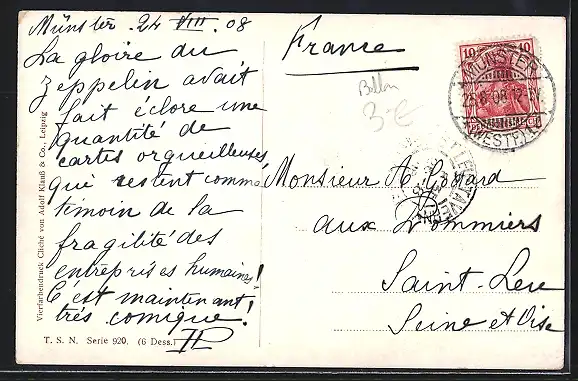 Münster. 24 VIII. 08
La gloire du
zeppelin avait
fait éclore une
quantité de
cartes orgueilleuses,
qui restent comme
témoin de la
fragilité des
entreprises humaines!
C'est maintenant
très comique!
France
Monsieur A. Gossard
aux Pommiers
Saint-Leu
Seine et Oise
10 10
MÜNSTER
(WESTF.)
3-€
Vierfarbendruck Cliché von Adolf Klauß & Co., Leipzig
T. S. N. Serie 920. (6 Dess.)